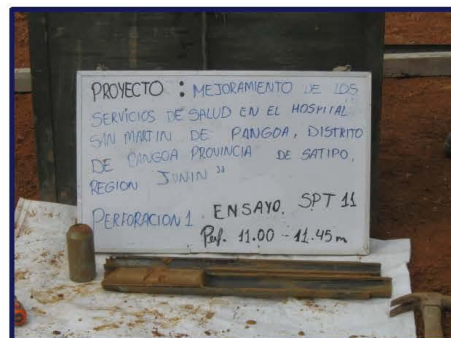 PROYECTO : MEJORAMIENTO DE LOS
SERVICIOS DE SALUD EN EL HOSPITAL
SAN MARTIN DE PANGOA, DISTRITO
DE PANGOA PROVINCIA DE SATIPO,
REGION JUNIN"
PERFORACION 1 ENSAYO. SPT 11
Perf. 11.00 - 11.45 m